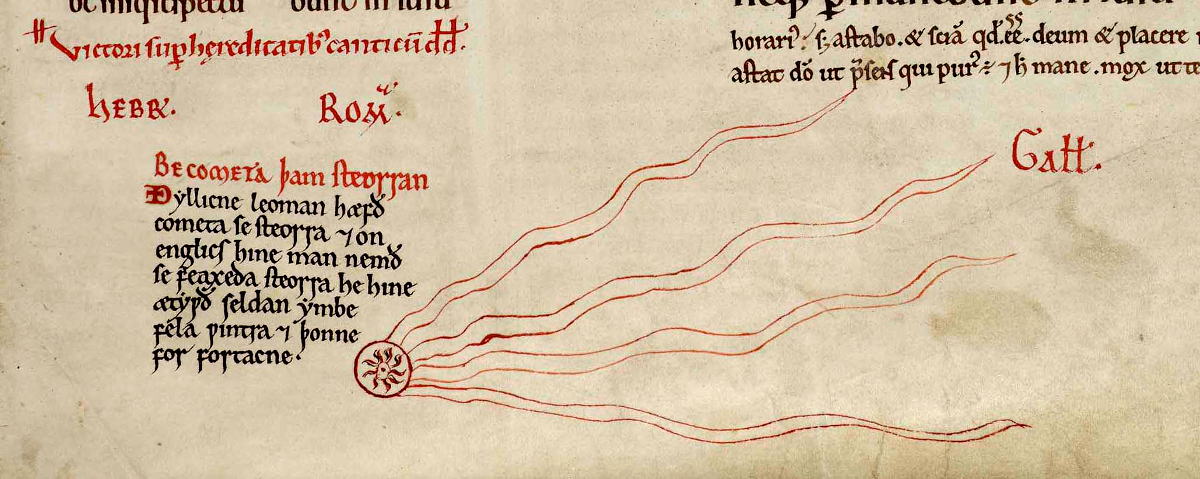 Victori sup hereditatib' canticū dd.
HEBR.
ROM̄.
horari'. s; astabo. & sciā qd. ēē. deum & placere
astat dō ut p̄sens qui pur' ÷ ⁊ h mane. mox ut te
Gaƚƚ.
Be cometa þam steorran
Ðyllicne leoman hæfð
cometa se steorra ⁊ on
englisc hine man nemð
se feaxeda steorra he hine
ætywð seldan ymbe
fela wintra ⁊ þonne
for fortacne·